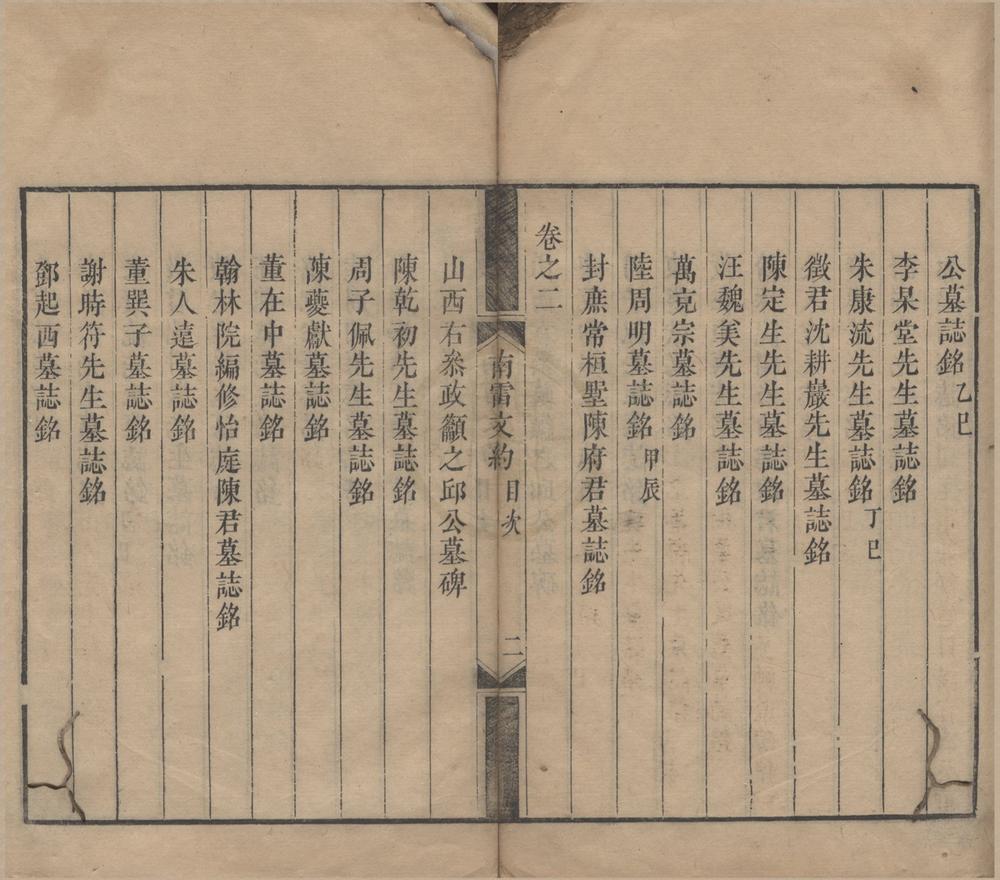 公墓誌銘乙巳
李杲堂先生墓誌銘
朱康流先生墓誌銘丁巳
徵君沈耕巖先生墓誌銘
陳定生先生墓誌銘
汪魏美先生墓誌銘
萬克宗墓誌銘
陸周明墓誌銘甲辰
封庶常桓墅陳府君墓誌銘
卷之二
南雷文約 目次 二
山西右叅政籲之邱公墓碑
陳乾初先生墓誌銘
周子佩先生墓誌銘
陳夔獻墓誌銘
董在中墓誌銘
翰林院編修怡庭陳君墓誌銘
朱人遠墓誌銘
董巽子墓誌銘
謝時符先生墓誌銘
鄧起西墓誌銘